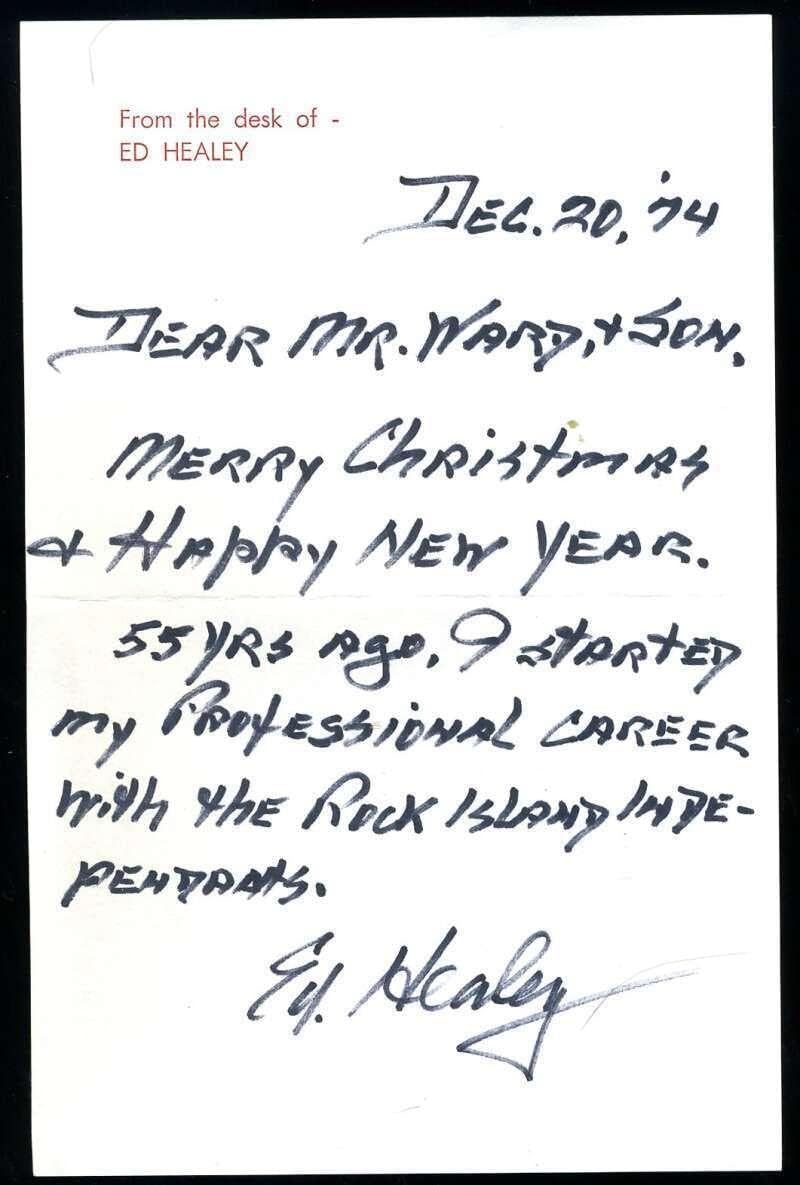 From the desk of -
ED HEALEY
DEC. 20, '74
DEAR MR. WARD, + SON,
MERRY Christmas
+ HAppy NEW YEAR.
55 YRS Ago, I stARTED
my PROfESSiONAL CAREER
With the ROCK ISLAND INDE-
PENDANTS.
Ed. Healey